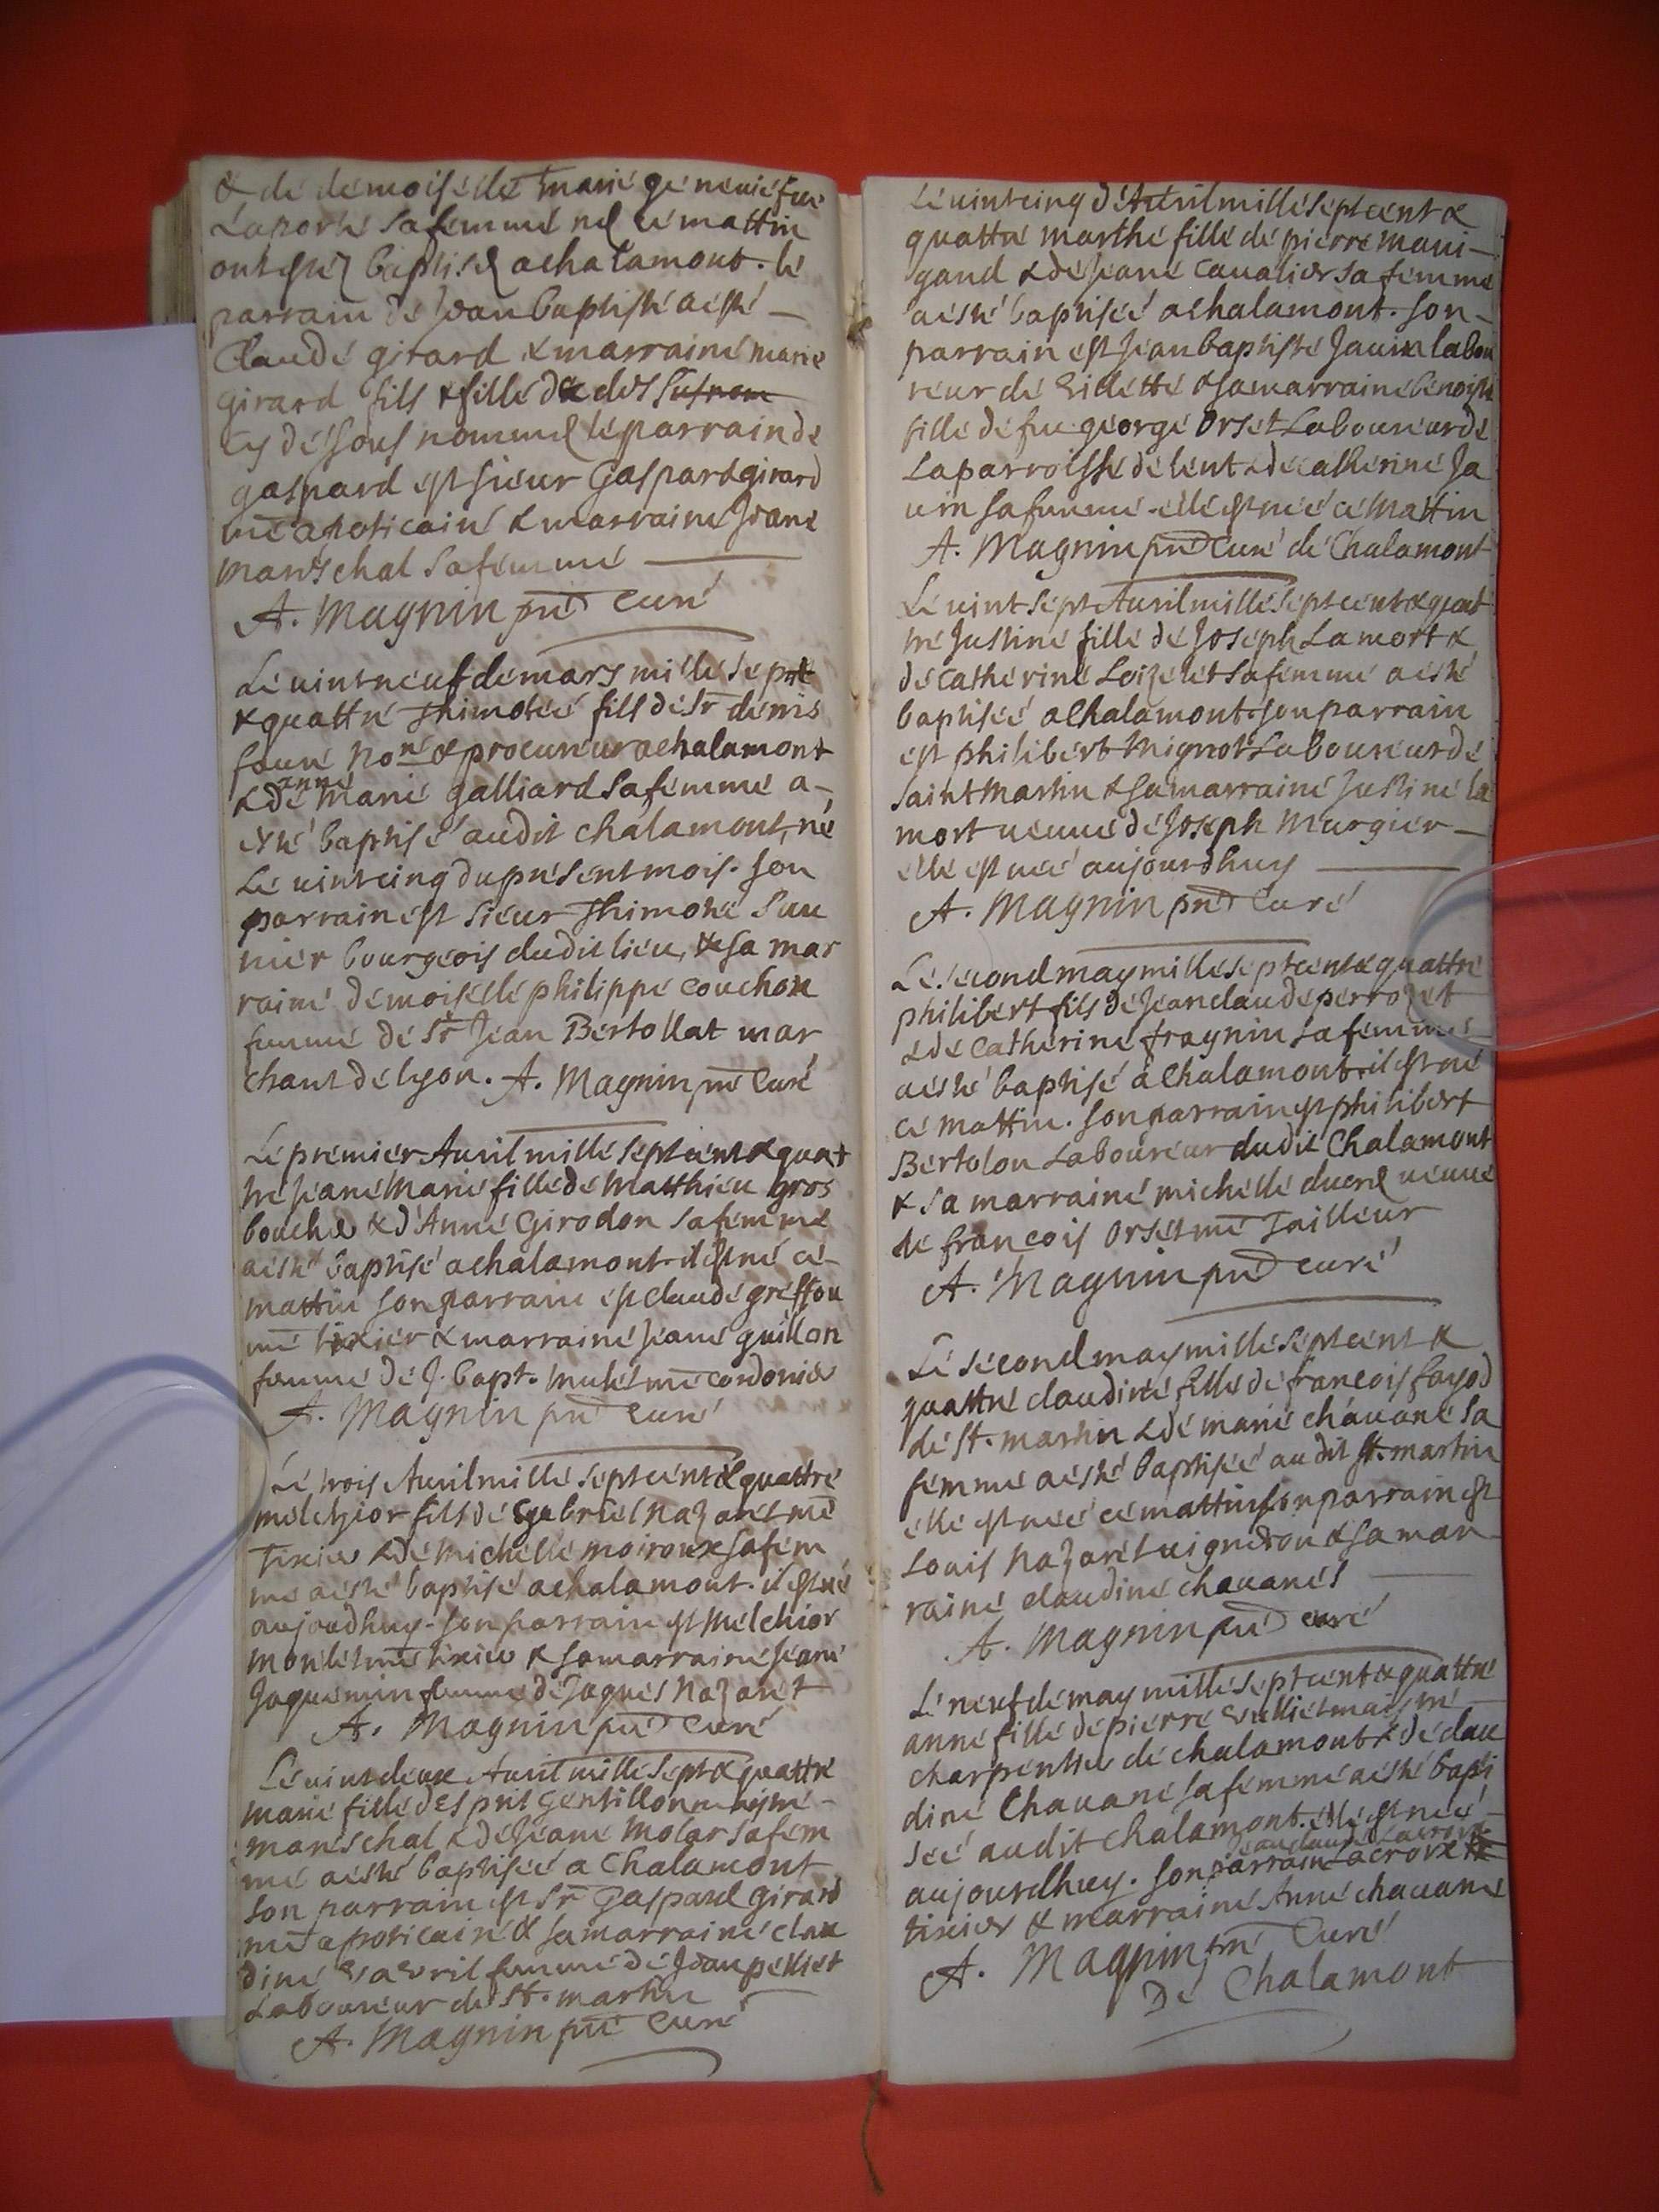 & de demoiselle marie geneuiefue
Laporte sa femme nes ce mattin
ont estez baptises a chalamont. le
parrain de Jean baptiste a esté –
Claude girard & marraine marie
girard fils & fille des
Cy dessous nommes le parrain de
gaspard est sieur Gaspard girard
me apoticaire & marraine Jeane
mareschal sa femme —
A. Magnin pre Curé
Le uint neuf de mars mille sept
& quattre Thimotée fils de Sr denis
faure No.re & procureur a chalamont
anne
& de marie galliard sa femme a –
esté baptisé audit chalamont, né
Le uint cinq du present mois. son
parrain est sieur Thimoté Sau
nier bourgeois dudit lieu, & sa mar
raine demoiselle philippe couchon
femme de Sr Jean Bertollat mar
chant de lyon. A. Magnin pre Curé
Le premier Auril mille sept cent & quat
tre Jeane Marie fille de Matthieu gros
bouche & d'Anne Girodon sa femme
a esté baptisé a chalamont il est né ce –
mattin son parrain est claude greffou
me tixier & marraine Jeane guillon
femme de J. bapt. mulet me cordonier
A. Magnin pre Curé
Le trois Auril mille sept cent & quattre
melchior fils de Gabriel Nazaret me
Tixier & de Michelle moiroux sa fem
me a esté baptisé a chalamont. il est né
aujourdhuy. son parrain est Melchior
monlet me tixier & sa marraine Jeane
Jaquemin femme de Jaques Nazaret
A. Magnin pre Curé
Le uint deux Auril mille sept & quattre
marie fille desprit gentillon mayme –
mareschal & de Jeane Molar sa fem
me a esté baptisée a Chalamont
son parrain est Sr Gaspard Girard
me apoticaire & sa marraine clau
dine Vavril femme de Jean pelliet
Laboureur de St. martin —
A. Magnin pre Curé
Le uint cinq d'Auril mille sept cent &
quattre marthe fille de pierre maui –
gand & de Jeane Caualier sa femme
a esté baptisée a chalamont. son –
parrain est Jean baptiste Jauin labou
reur de Villette & sa marraine benoiste
fille de feu george Orset Laboureur de
La parroisse de lent & de catherine Ja
uin sa femme. elle est née ce Mattin
A. Magnin pre Curé de Chalamont
Le uint sept Auril mille sept cent & quat
tre Justine fille de Joseph Lamort &
de catherine Loizelet sa femme a esté
baptisée a Chalamont. son parrain
est philibert Mignot Laboureur de
saint Martin & sa marraine Justine la
mort ueuue de Joseph Murgier –
elle est née aujourdhuy —
A. Magnin pre Curé
Le second may mille sept cent & quattre
philibert fils de Jean claude perrozet
& de catherine fragnin sa femme
a esté baptisé a Chalamont. il est né
ce mattin. son parrain est philibert
Bertolon Laboureur dudit Chalamont
& sa marraine michelle ducres ueuue
de francois Orset me Tailleur
A. Magnin pre curé
Le second may mille sept cent &
quattre claudine fille de francois fayod
de St. martin & de marie chauane sa
femme a esté baptisée audit St. martin
elle est née ce mattin son parrain est
Louis Nazaret uigneron & sa mar
raine claudine chauanes —
A. Magnin pre curé
Le neuf de may mille sept cent & quattre
anne fille de pierre Vulliet maistre
charpentier de chalamont & de clau
dine Chauane sa femme a esté bapti
sée audit chalamont. elle est née –
Jean claude Lacroix
aujourdhuy. son parrain Lacroix
tixier & marraine Anne chauane
A. Magnin pre Curé
De Chalamont